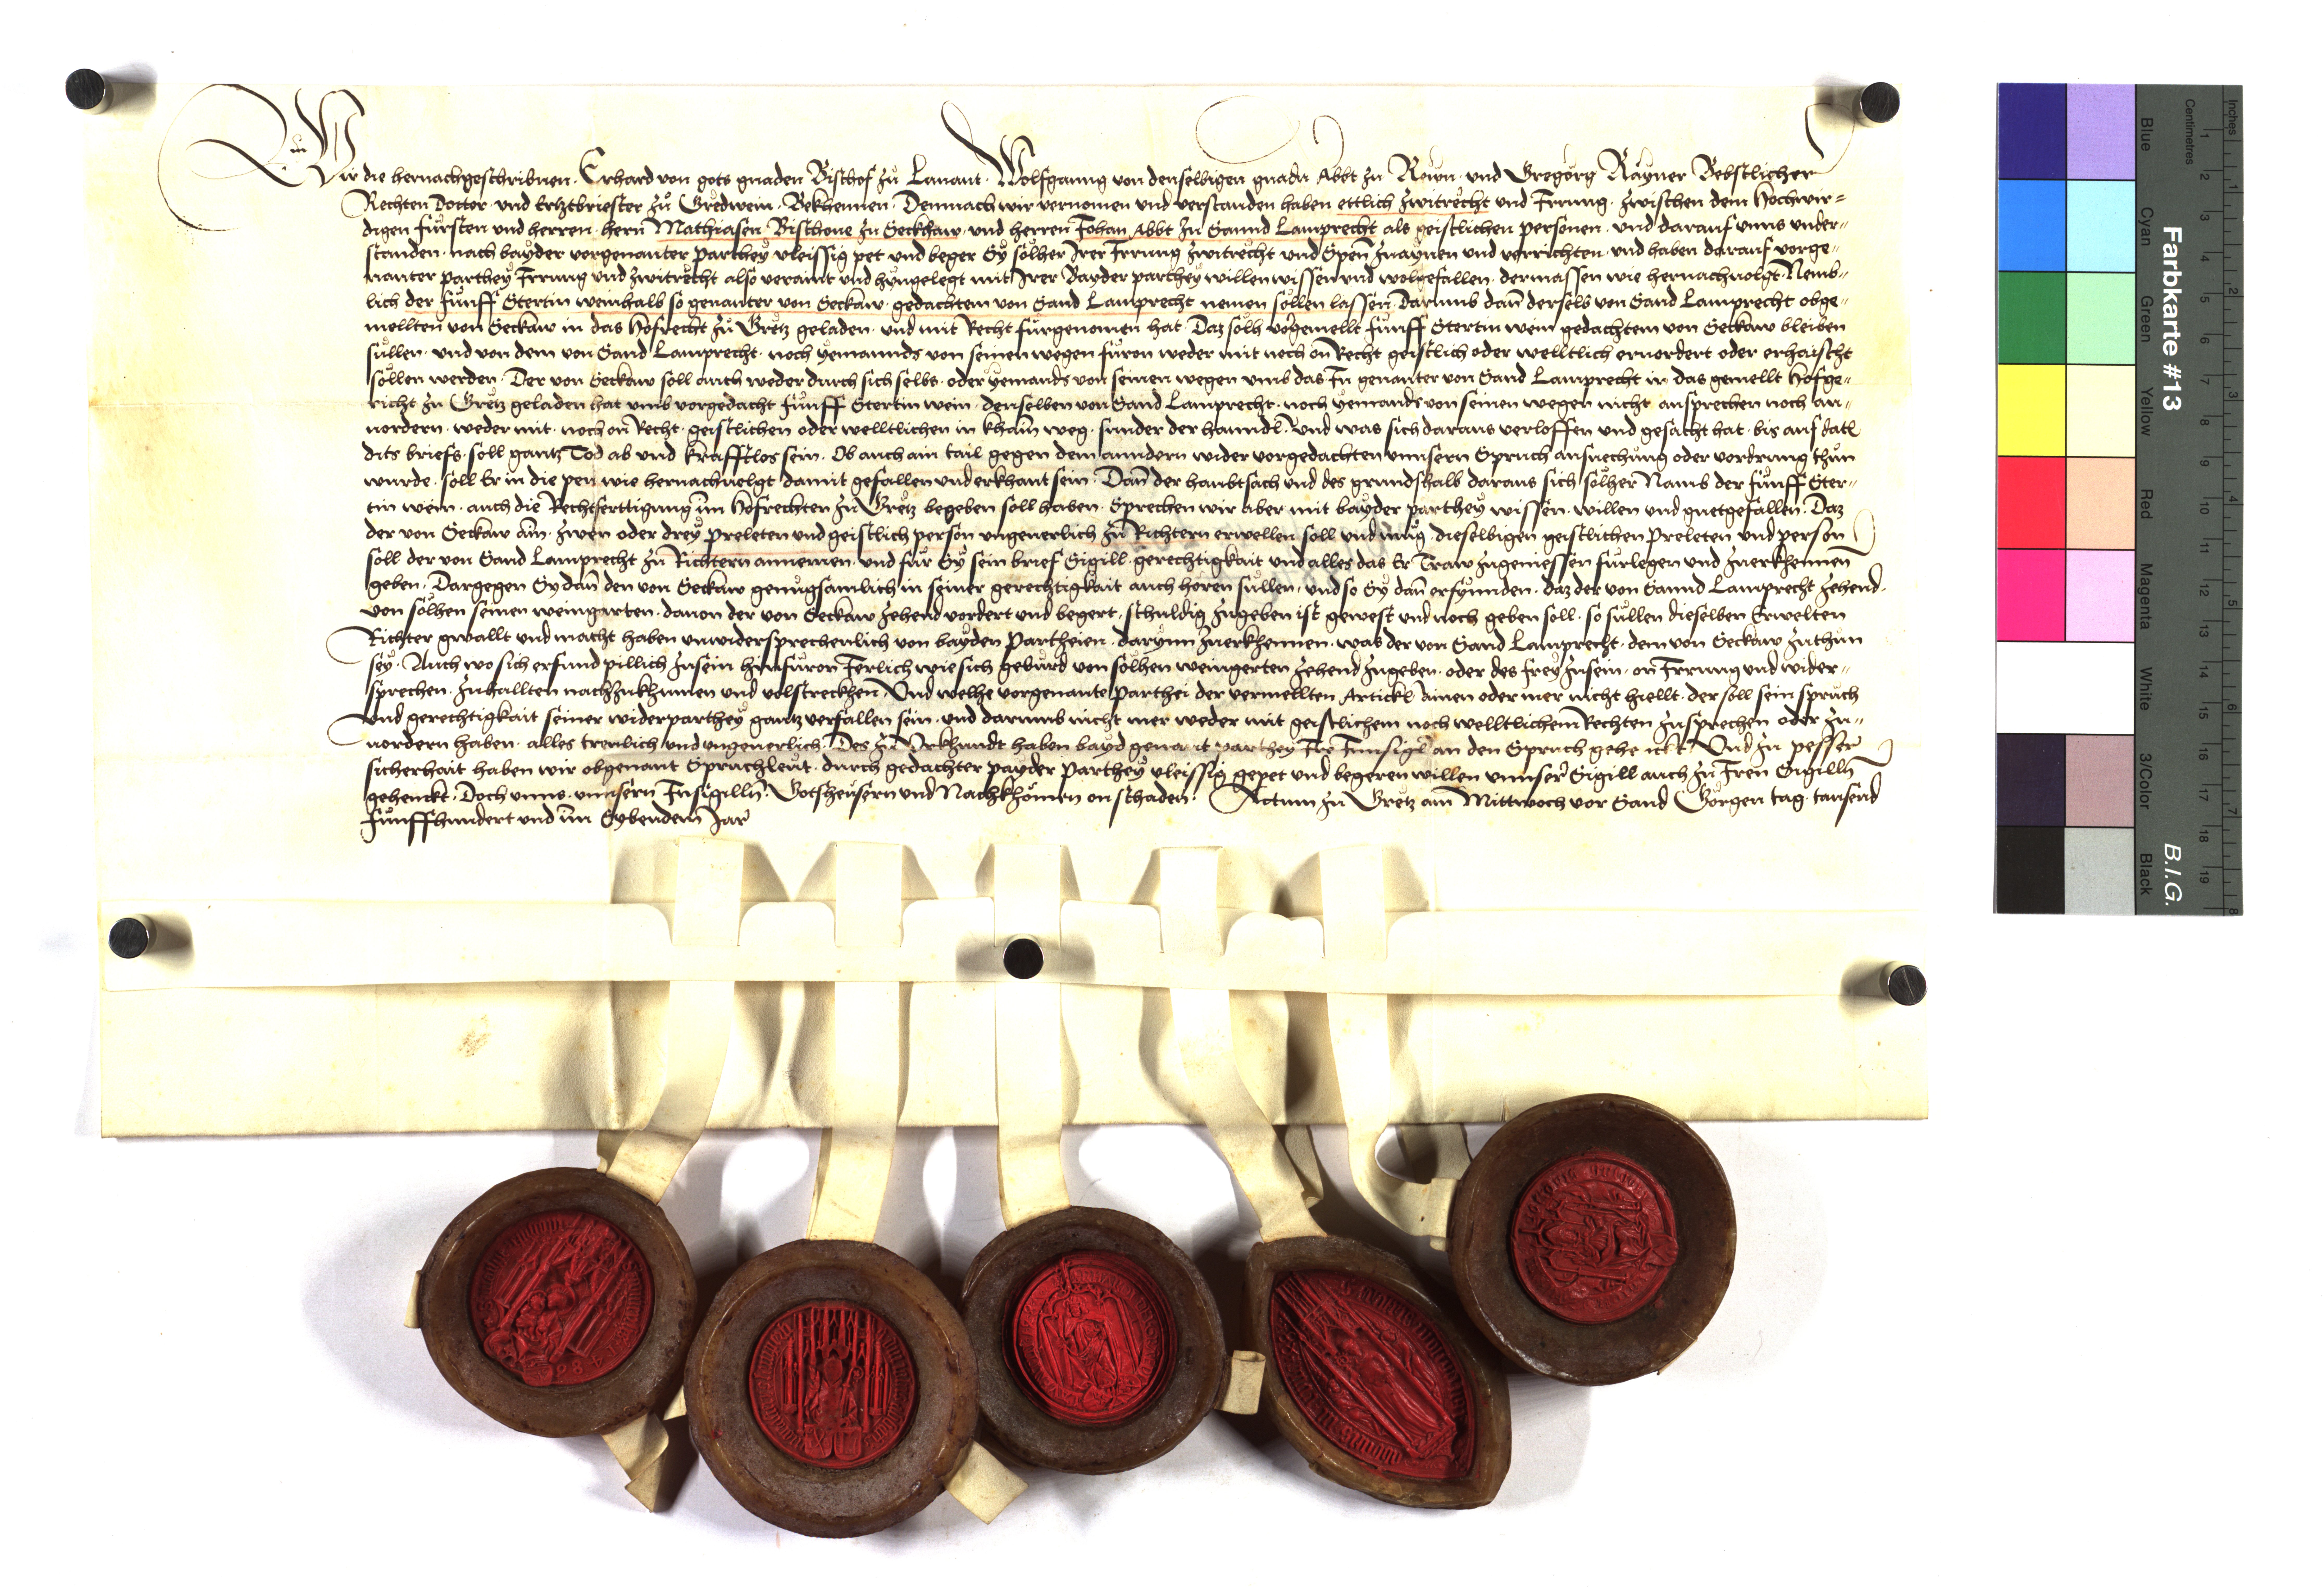 Wir die hernachgeschribnen · Erhard von gots gnaden Bischof zů Lauant · Wolfganng von denselbigen gnadn Abbt zu Rewn · und Gregorg Rayner Bebstlicher
Rechten Doctor · und Ertzbriester zů Gredwein · Bekhennen · Demnach wir vernomen und verstanden haben ettlich zwitrecht und Irrung · zwischen dem Hochwir=
digen fürsten und herren · hern Mathiasen Bischoue zu Seckhaw · und herren Johan Abbt zu Sannd Lamprecht als geistlichen personen · und darauf unns under=
standen · nach bayder vorgenanter parthey vleissig pet und beger Sy sölher Irer Irrung zwitrecht und Spen zuaynen und verrichten · und haben darauf vorge=
nanter parthey Irrung und zwitrecht also veraint und hyngelegt mit Irer Bayder parthey willen wissen und wolgefallen · dermassen wie hernachuolgt · Nemb=
lich der fünff Stertin weinhalb so genanter von Seckaw · gedachtem von Sand Lamprecht nemen sollen lassen · Darumb dan derselb von Sand Lamprecht obge=
mellten von Seckaw in das Hofrecht zů Gretz geladen · und mit Recht fürgenomen hat · Daz sölh vorgemellt fünff Stertin wein gedachtem von Seckaw bleiben
süllen · und von dem von Sand Lamprecht · noch yemannds von seinen wegen füron weder mit noch on Recht geistlich oder welltlich eruordert oder erhaischt
söllen werden · Der von Seckaw soll auch weder durch sich selbs · oder yemands von seinen wegen umb das In genanter von Sand Lamprecht in das gemellt Hofge=
richt zu Gretz geladen hat umb vorgedacht fünff Stertin wein · denselben von Sand Lamprecht · noch yemands von seinen wegen nicht ansprechen noch an=
uordern · weder mit · noch on Recht · geistlichen oder welltlichen in khain weg · sunder der hanndl · und was sich daraus verloffen und gesacht hat · bis auf datl
dits briefs · soll gantz Tod ab und krafftlos sein · Ob auch ain tail gegen dem anndern wider vorgedachten unnsern Spruch ansuechung oder vordrung thun
wurde · soll Er in die pen wie hernachuolgt damit gefallen und erkhant sein · Dan der haubtsach und des grundshalb daraus sich sölher Namb der fünff Ster=
tin wein · auch die Rechtferttigung im Hofrechten zu Gretz begeben soll haben · Sprechen wir aber mit bayder parthey wissen · willen und guetgefallen · Daz
der von Seckaw ain · zwen oder drey Preleten und geistlich person ungeuerlich zů Richtern erwellen soll und mug · dieselbigen geistlichen Preleten und person
soll der von Sand Lamprecht zů Richtern annemen · und für Sy sein brief Sigill · gerechtigkait und alles das Er Traw zugeniessen fürlegen und zuerkhennen
geben · Dargegen Sy dan den von Seckaw genügsamlich in seiner gerechtigkait auch horen süllen · und so Sy dan erfynnden · daz der von Sannd Lamprecht zehend
von sölhen seinen weingarten · dauon der von Seckaw zehend vordert und begert · schuldig zugeben ist gewest und noch geben soll · so süllen dieselben Erwelten
Richter gwallt und macht haben unwidersprechenlich von bayden Partheien · darynn zuerkhennen · was der von Sand Lamprecht · dem von Seckaw zuthun
sey · Auch wo sich erfund pillich zusein hinfüron Ierlich wie sich geburd von sölhen weingerten zehend zugeben · oder des frey zusein · on Irrung und wider=
sprechen · zuhallten nachzukhumen und volstreckhen · Und welhe vorgenante Parthei der vermellten Artickl ainen oder mer nicht hiellt · der soll sein spruch
und gerechtigkait seiner widerparthey gantz verfallen sein · und darumb nicht mer weder mit geistlichem noch welltlichem Rechten zusprechen oder zu=
uordern haben · alles treulich und ungeuerlich · Des zu Urkhundt haben bayd genant parthey Ire Innsigl an den Spruch gehenckt · Und zu pesser
sicherhait haben wir obgenant Spruchleut · durch gedachter payder Parthey vleissig gepet und begeren willen unnser Sigill auch zu Iren Sigilln
gehenckt · Doch unns · unnsern Insigilln · Gotsheusern und Nachkhomen on schaden · Actum zu Gretz am Mittwoch vor Sand Görgen tag · tausend
fünffhundert und im Sybenden Jar
Farbkarte #13
B.I.G.
Inches
Centimetres
Blue
Cyan
Green
Yellow
Red
Magenta
White
3/Color
Black
1 2 3 4 5 6 7 8 9 10 11 12 13 14 15 16 17 18 19
1 2 3 4 5 6 7 8